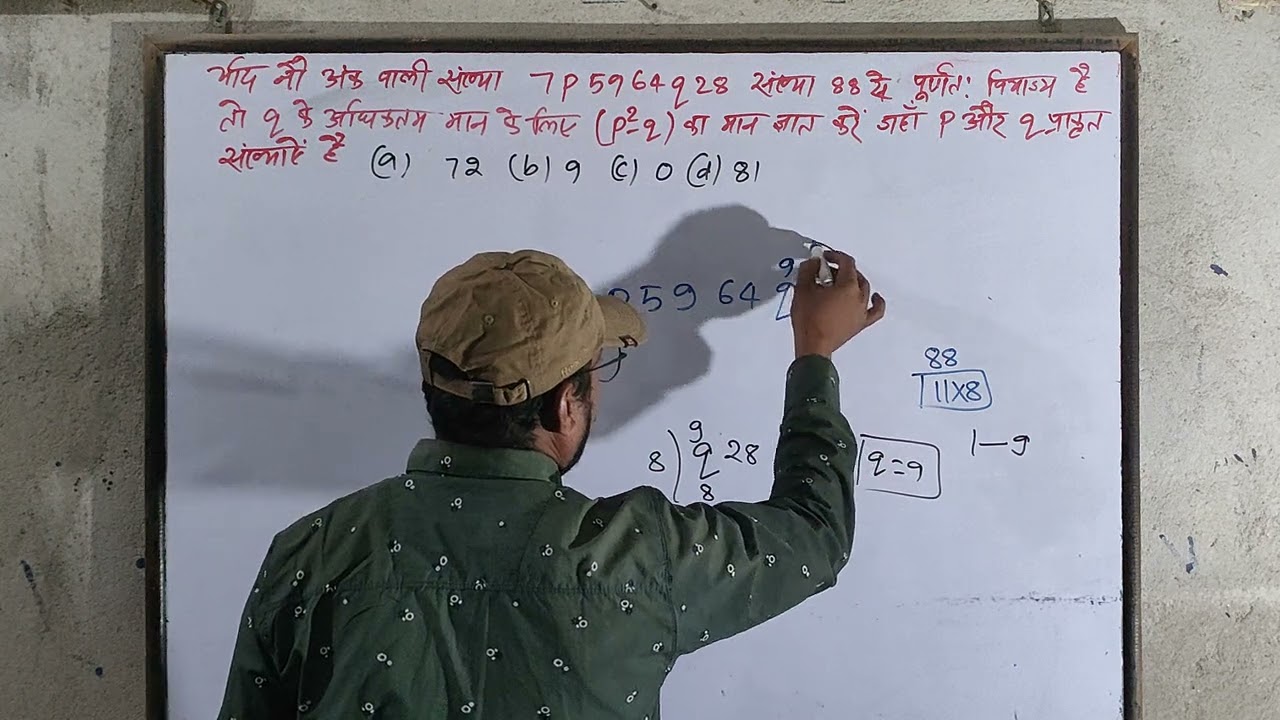 यदि नौ अंक वाली संख्या 7P5964q28 संख्या 88 से पूर्णतः विभाज्य है
तो q के अधिकतम मान के लिए (P²-q) का मान ज्ञात करें जहाँ P और q प्राकृत
संख्याऐं है (a) 72 (b) 9 (c) 0 (d) 81
9
5964q
88
11x8
9
8) q28
8
q=9
1—9